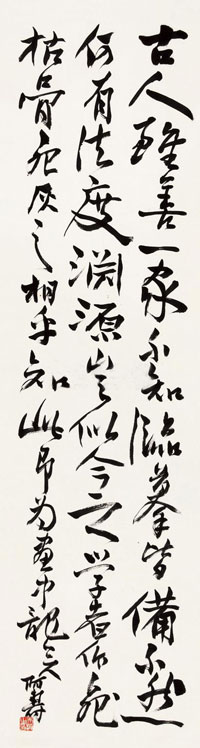 古人雖善一家不知臨摹皆備不然
何有法度淵源豈似今之學者作死
枯骨死灰之相乎知此即為畫中龍矣 阿壽